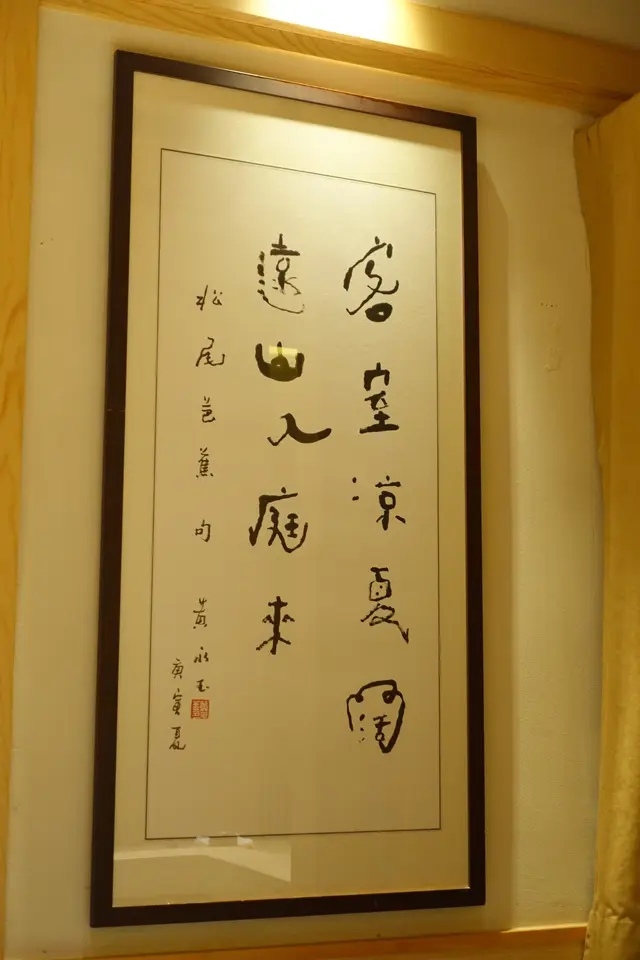 客室凉夏阔
遠山入庭來
松尾芭蕉句 黄永玉
庚寅夏